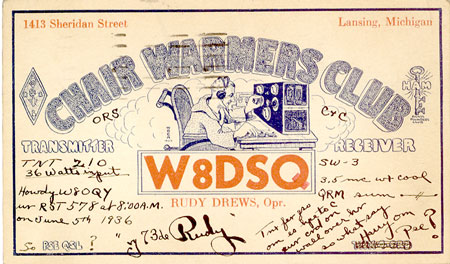 1413 Sheridan Street
Lansing, Michigan
CHAIR WARMERS CLUB
HAM
ORS
TRANSMITTER
RECEIVER
TNT 210
36 Watts input
Howdy W8OQY
ur RST 578 at 8:00 A.M.
on June 5th 1936
So PSE QSL ?
W8DSQ
RUDY DREWS, Opr.
"73 de Rudy"
SW-3
3.5 mc wt cool
QRM sum
Tnx fer
QSO
es hpe to C
u all over hr
so what say
om
Pse?